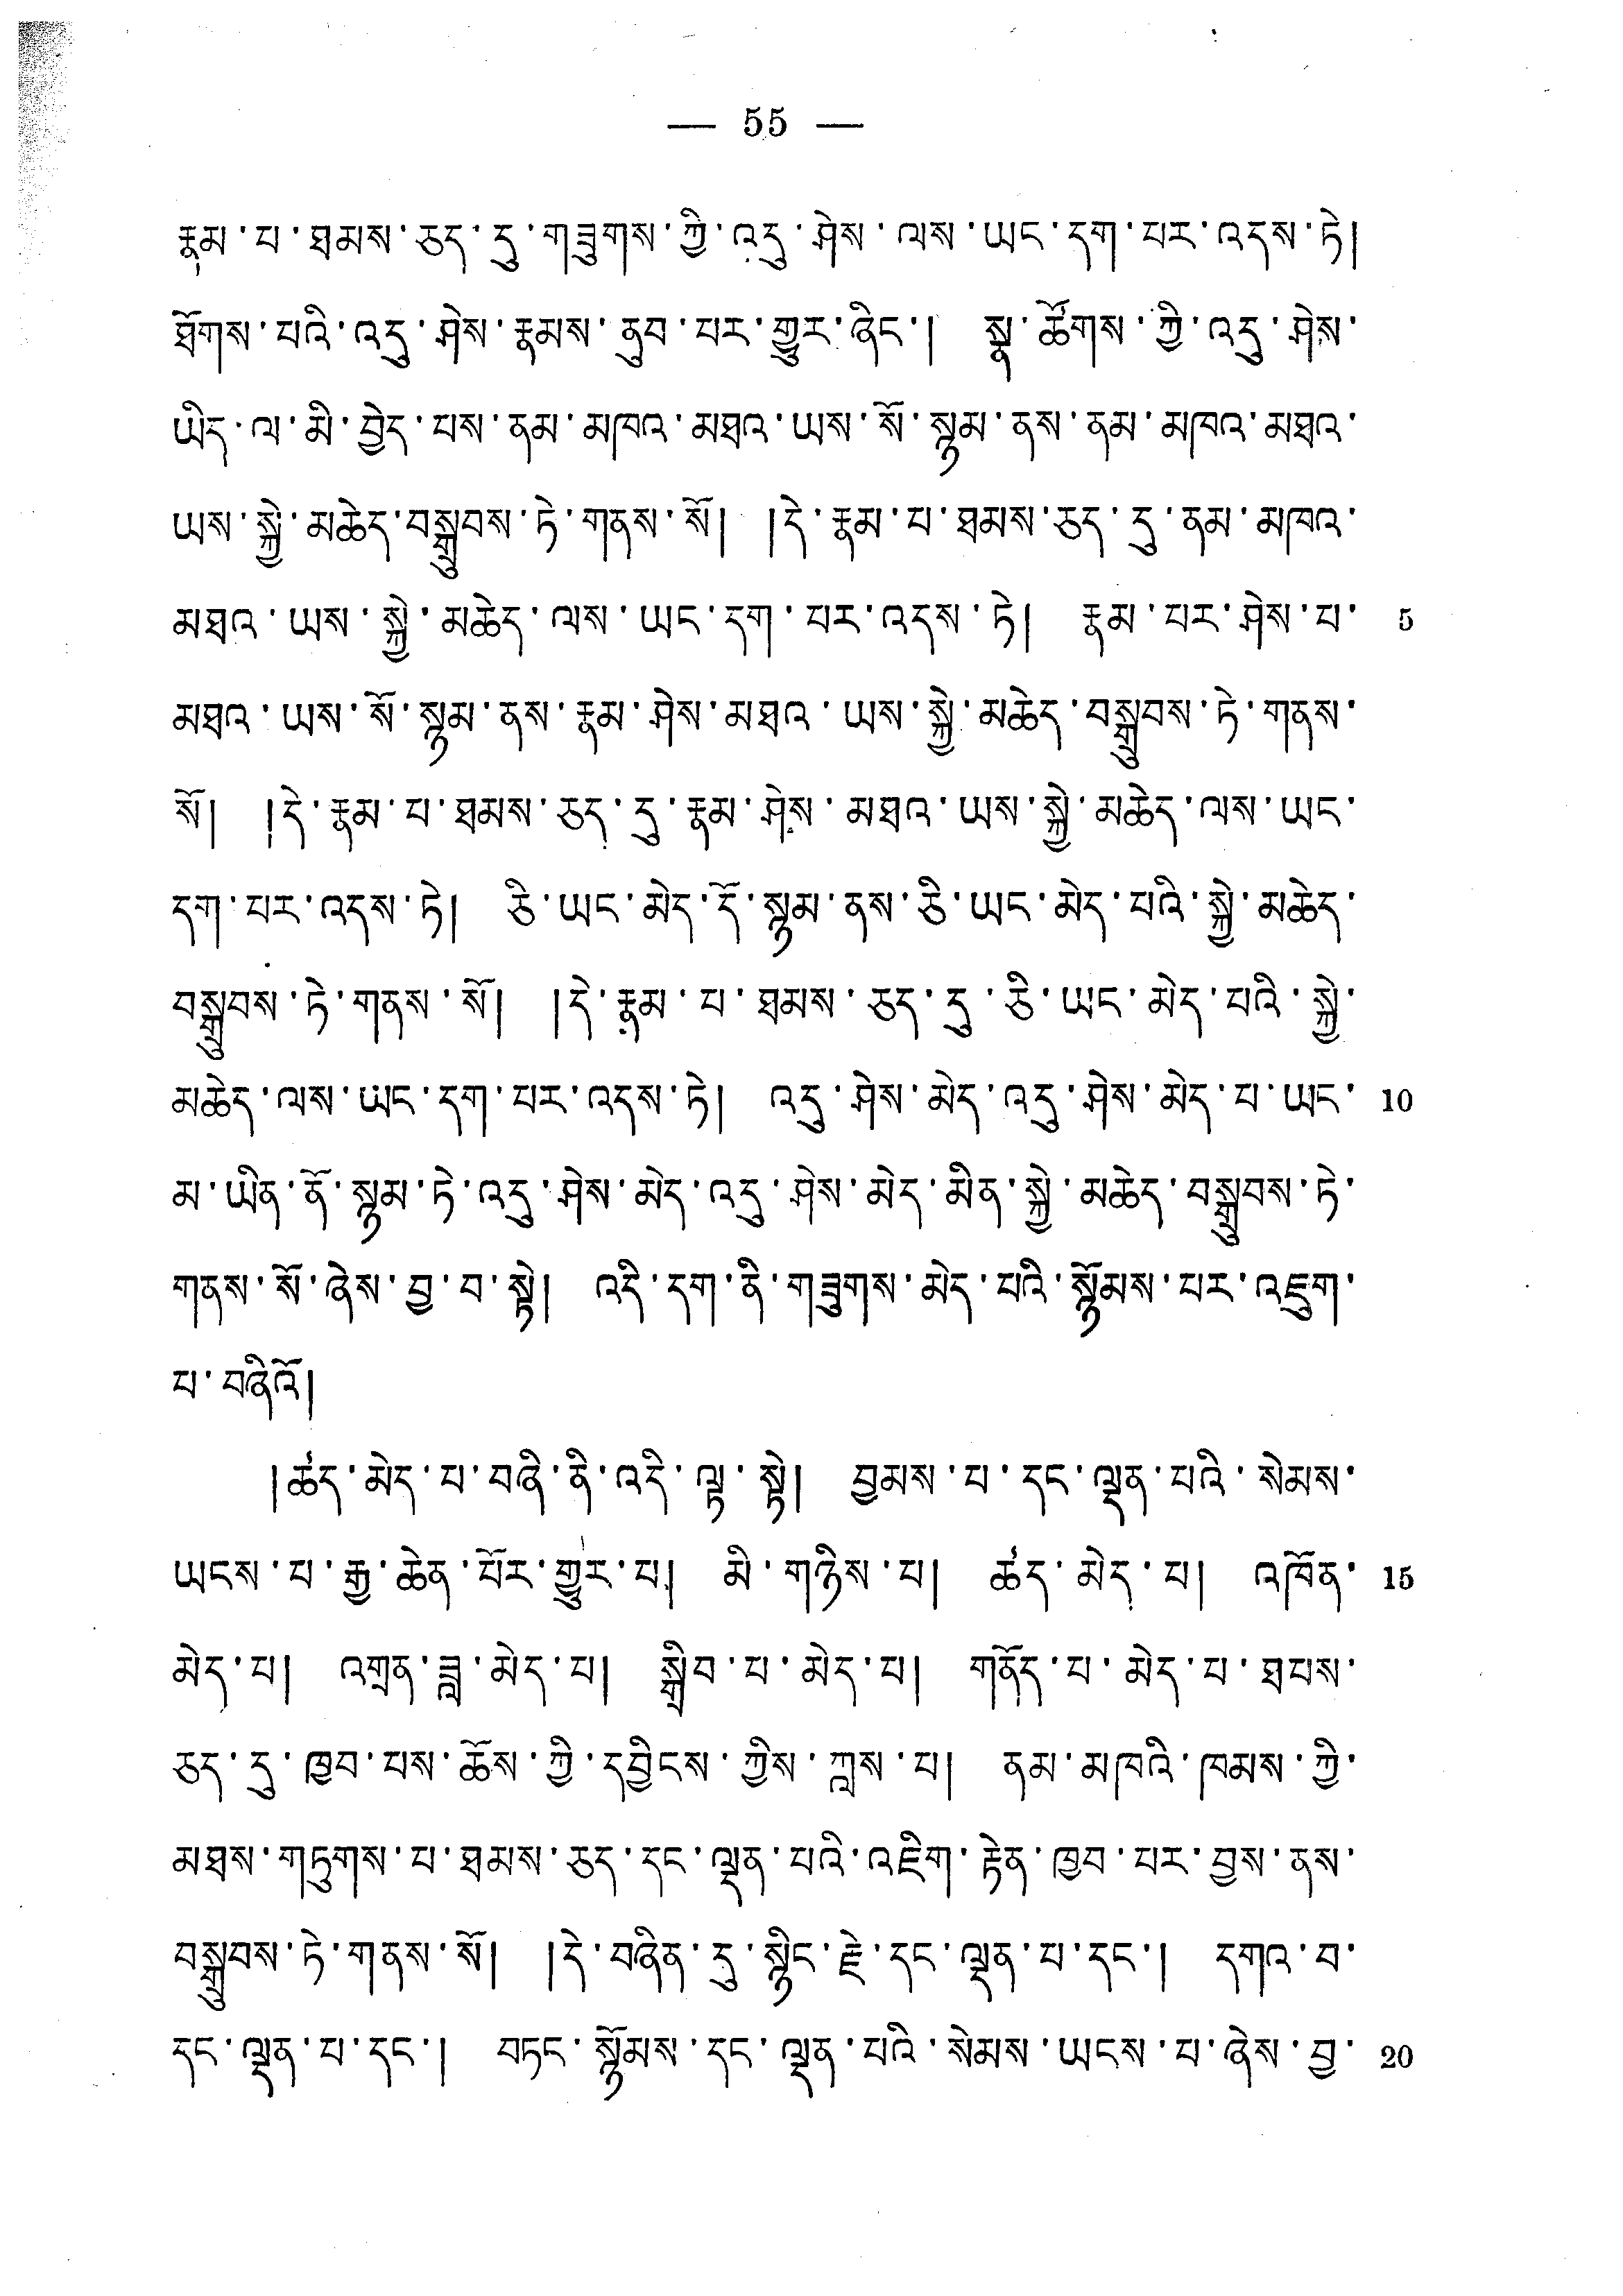 — 55 —
རྣམ་པ་ཐམས་ཅད་དུ་གཟུགས་ཀྱི་འདུ་ཤེས་ལས་ཡང་དག་པར་འདས་ཏེ།
ཐོགས་པའི་འདུ་ཤེས་རྣམས་ནུབ་པར་གྱུར་ཞིང་། སྣ་ཚོགས་ཀྱི་འདུ་ཤེས་
ཡིད་ལ་མི་བྱེད་པས་ནམ་མཁའ་མཐའ་ཡས་སོ་སྙམ་ནས་ནམ་མཁའ་མཐའ་
ཡས་སྐྱེ་མཆེད་བསྒྲུབས་ཏེ་གནས་སོ། །དེ་རྣམ་པ་ཐམས་ཅད་དུ་ནམ་མཁའ་
མཐའ་ཡས་སྐྱེ་མཆེད་ལས་ཡང་དག་པར་འདས་ཏེ། རྣམ་པར་ཤེས་པ་ 5
མཐའ་ཡས་སོ་སྙམ་ནས་རྣམ་ཤེས་མཐའ་ཡས་སྐྱེ་མཆེད་བསྒྲུབས་ཏེ་གནས་
སོ། །དེ་རྣམ་པ་ཐམས་ཅད་དུ་རྣམ་ཤེས་མཐའ་ཡས་སྐྱེ་མཆེད་ལས་ཡང་
དག་པར་འདས་ཏེ། ཅི་ཡང་མེད་དོ་སྙམ་ནས་ཅི་ཡང་མེད་པའི་སྐྱེ་མཆེད་
བསྒྲུབས་ཏེ་གནས་སོ། །དེ་རྣམ་པ་ཐམས་ཅད་དུ་ཅི་ཡང་མེད་པའི་སྐྱེ་
མཆེད་ལས་ཡང་དག་པར་འདས་ཏེ། འདུ་ཤེས་མེད་འདུ་ཤེས་མེད་པ་ཡང་ 10
མ་ཡིན་ནོ་སྙམ་ཏེ་འདུ་ཤེས་མེད་འདུ་ཤེས་མེད་མིན་སྐྱེ་མཆེད་བསྒྲུབས་ཏེ་
གནས་སོ་ཞེས་བྱ་བ་སྟེ། འདི་དག་ནི་གཟུགས་མེད་པའི་སྙོམས་པར་འཇུག་
པ་བཞིའོ།
།ཚད་མེད་པ་བཞི་ནི་འདི་ལྟ་སྟེ། བྱམས་པ་དང་ལྡན་པའི་སེམས་
ཡངས་པ་རྒྱ་ཆེན་པོར་གྱུར་པ། མི་གཉིས་པ། ཚད་མེད་པ། འཁོན་ 15
མེད་པ། འགྲན་ཟླ་མེད་པ། སྒྲིབ་པ་མེད་པ། གནོད་པ་མེད་པ་ཐབས་
ཅད་དུ་ཁྱབ་པས་ཆོས་ཀྱི་དབྱིངས་ཀྱིས་ཀླས་པ། ནམ་མཁའི་ཁམས་ཀྱི་
མཐས་གཏུགས་པ་ཐམས་ཅད་དང་ལྡན་པའི་འཇིག་རྟེན་ཁྱབ་པར་བྱས་ནས་
བསྒྲུབས་ཏེ་གནས་སོ། །དེ་བཞིན་དུ་སྙིང་རྗེ་དང་ལྡན་པ་དང་། དགའ་བ་
དང་ལྡན་པ་དང་། བཏང་སྙོམས་དང་ལྡན་པའི་སེམས་ཡངས་པ་ཞེས་བྱ་ 20